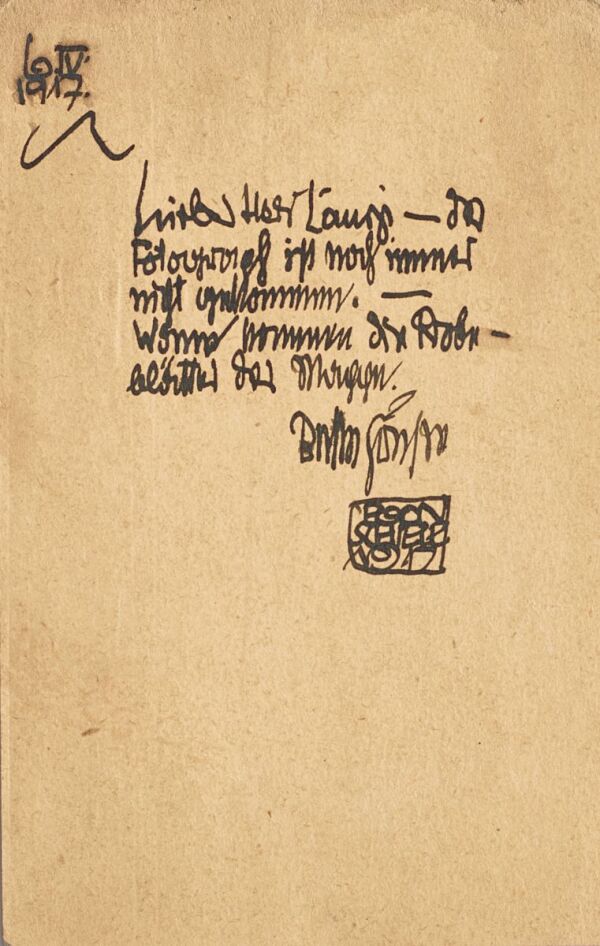 6.IV.
1917.
Lieber Herr Lányi — der
Fotograph ist noch immer
nicht gekommen. —
Wann kommen die Probe-
blätter der Mappe.
Besten
EGON
SCHIELE
1917